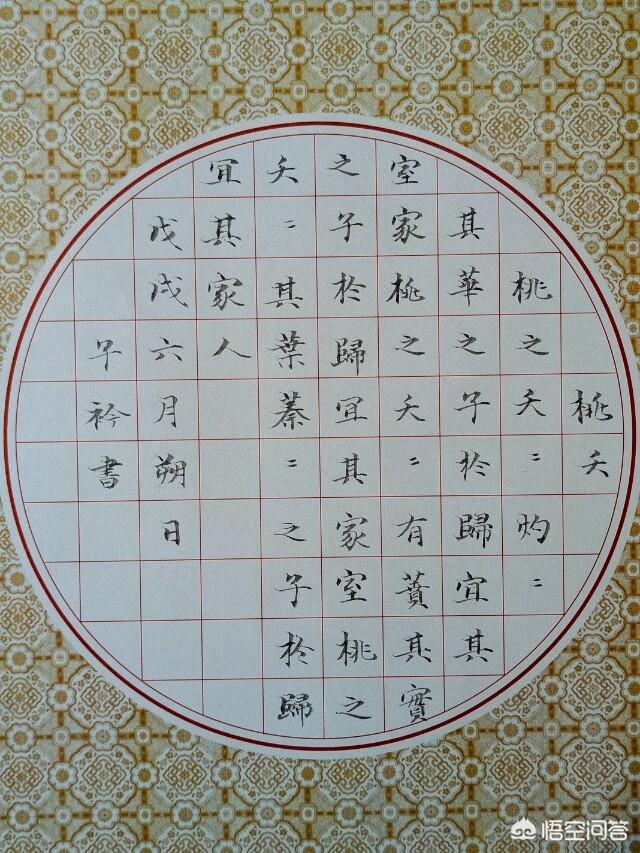 桃夭
桃之夭〻灼〻
其華之子於歸宜其
室家桃之夭〻有蕡其實
之子於歸宜其家室桃之
夭〻其葉蓁〻之子於歸
宜其家人
戊戌六月朔日
子衿書
悟空问答